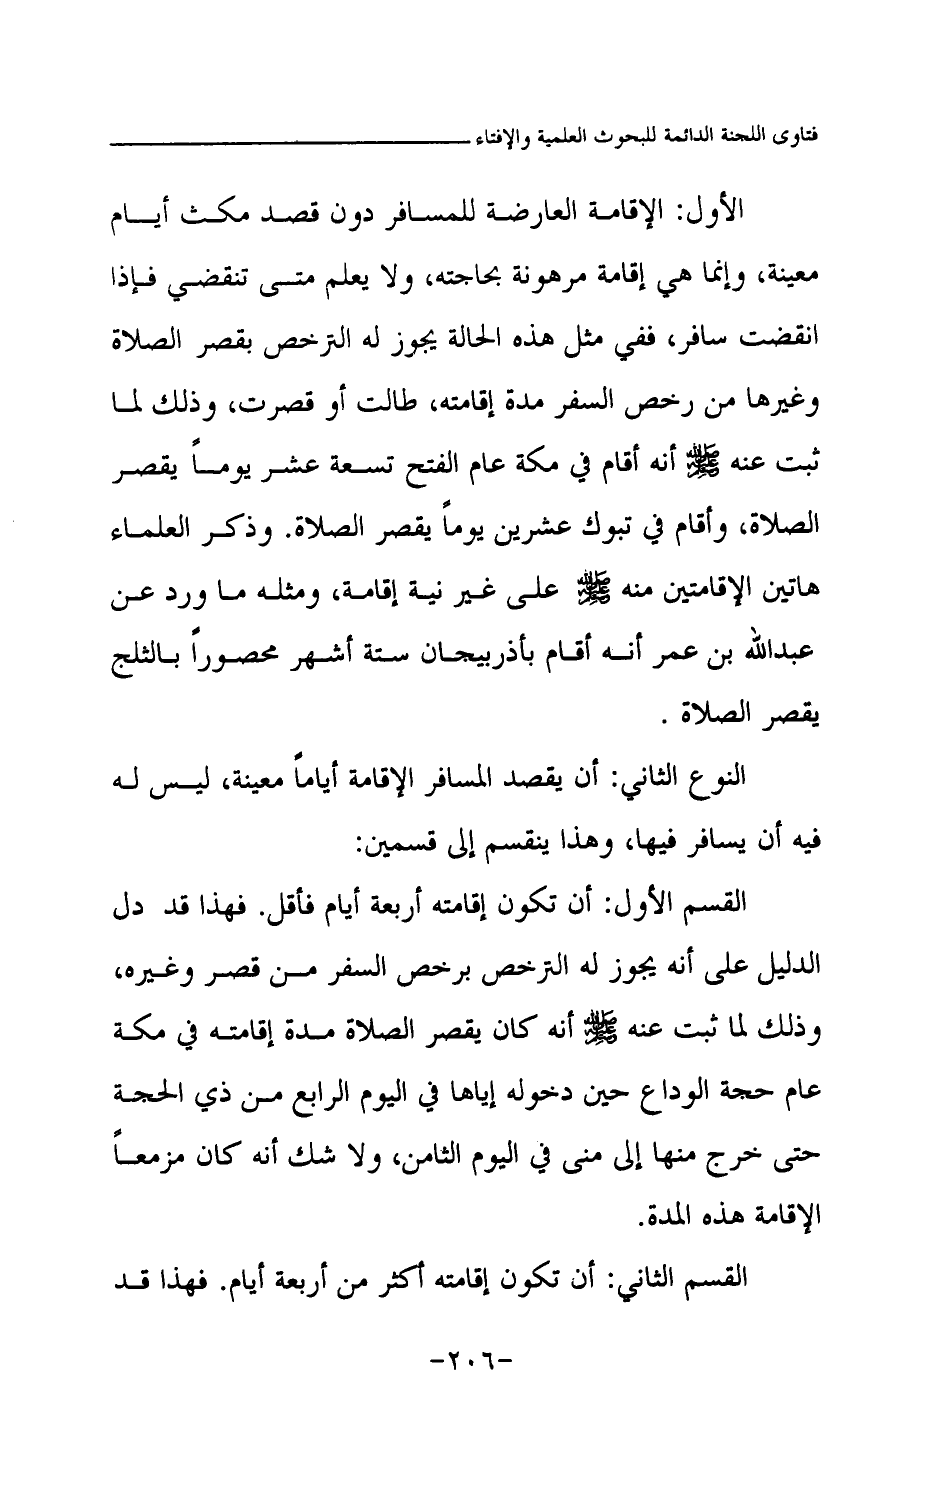 فتاوى اللجنة الدائمة للبحوث العلمية والإفتاء
الأول: الإقامة العارضة للمسافر دون قصد مكث أيام
معينة، وإنما هي إقامة مرهونة بحاجته، ولا يعلم متى تنقضي فإذا
انقضت سافر، ففي مثل هذه الحالة يجوز له الترخص بقصر الصلاة
وغيرها من رخص السفر مدة إقامته، طالت أو قصرت، وذلك لما
ثبت عنه ﷺ أنه أقام في مكة عام الفتح تسعة عشر يوماً يقصر
الصلاة، وأقام في تبوك عشرين يوماً يقصر الصلاة. وذكر العلماء
هاتين الإقامتين منه ﷺ على غير نية إقامة، ومثله ما ورد عن
عبدالله بن عمر أنه أقام بأذربيجان ستة أشهر محصوراً بالثلج
يقصر الصلاة .
النوع الثاني: أن يقصد المسافر الإقامة أياماً معينة، ليس له
فيه أن يسافر فيها، وهذا ينقسم إلى قسمين:
القسم الأول: أن تكون إقامته أربعة أيام فأقل. فهذا قد دل
الدليل على أنه يجوز له الترخص برخص السفر من قصر وغيره،
وذلك لما ثبت عنه ﷺ أنه كان يقصر الصلاة مدة إقامته في مكة
عام حجة الوداع حين دخوله إياها في اليوم الرابع من ذي الحجة
حتى خرج منها إلى منى في اليوم الثامن، ولا شك أنه كان مزمعاً
الإقامة هذه المدة.
القسم الثاني: أن تكون إقامته أكثر من أربعة أيام. فهذا قد
-٢٠٦-